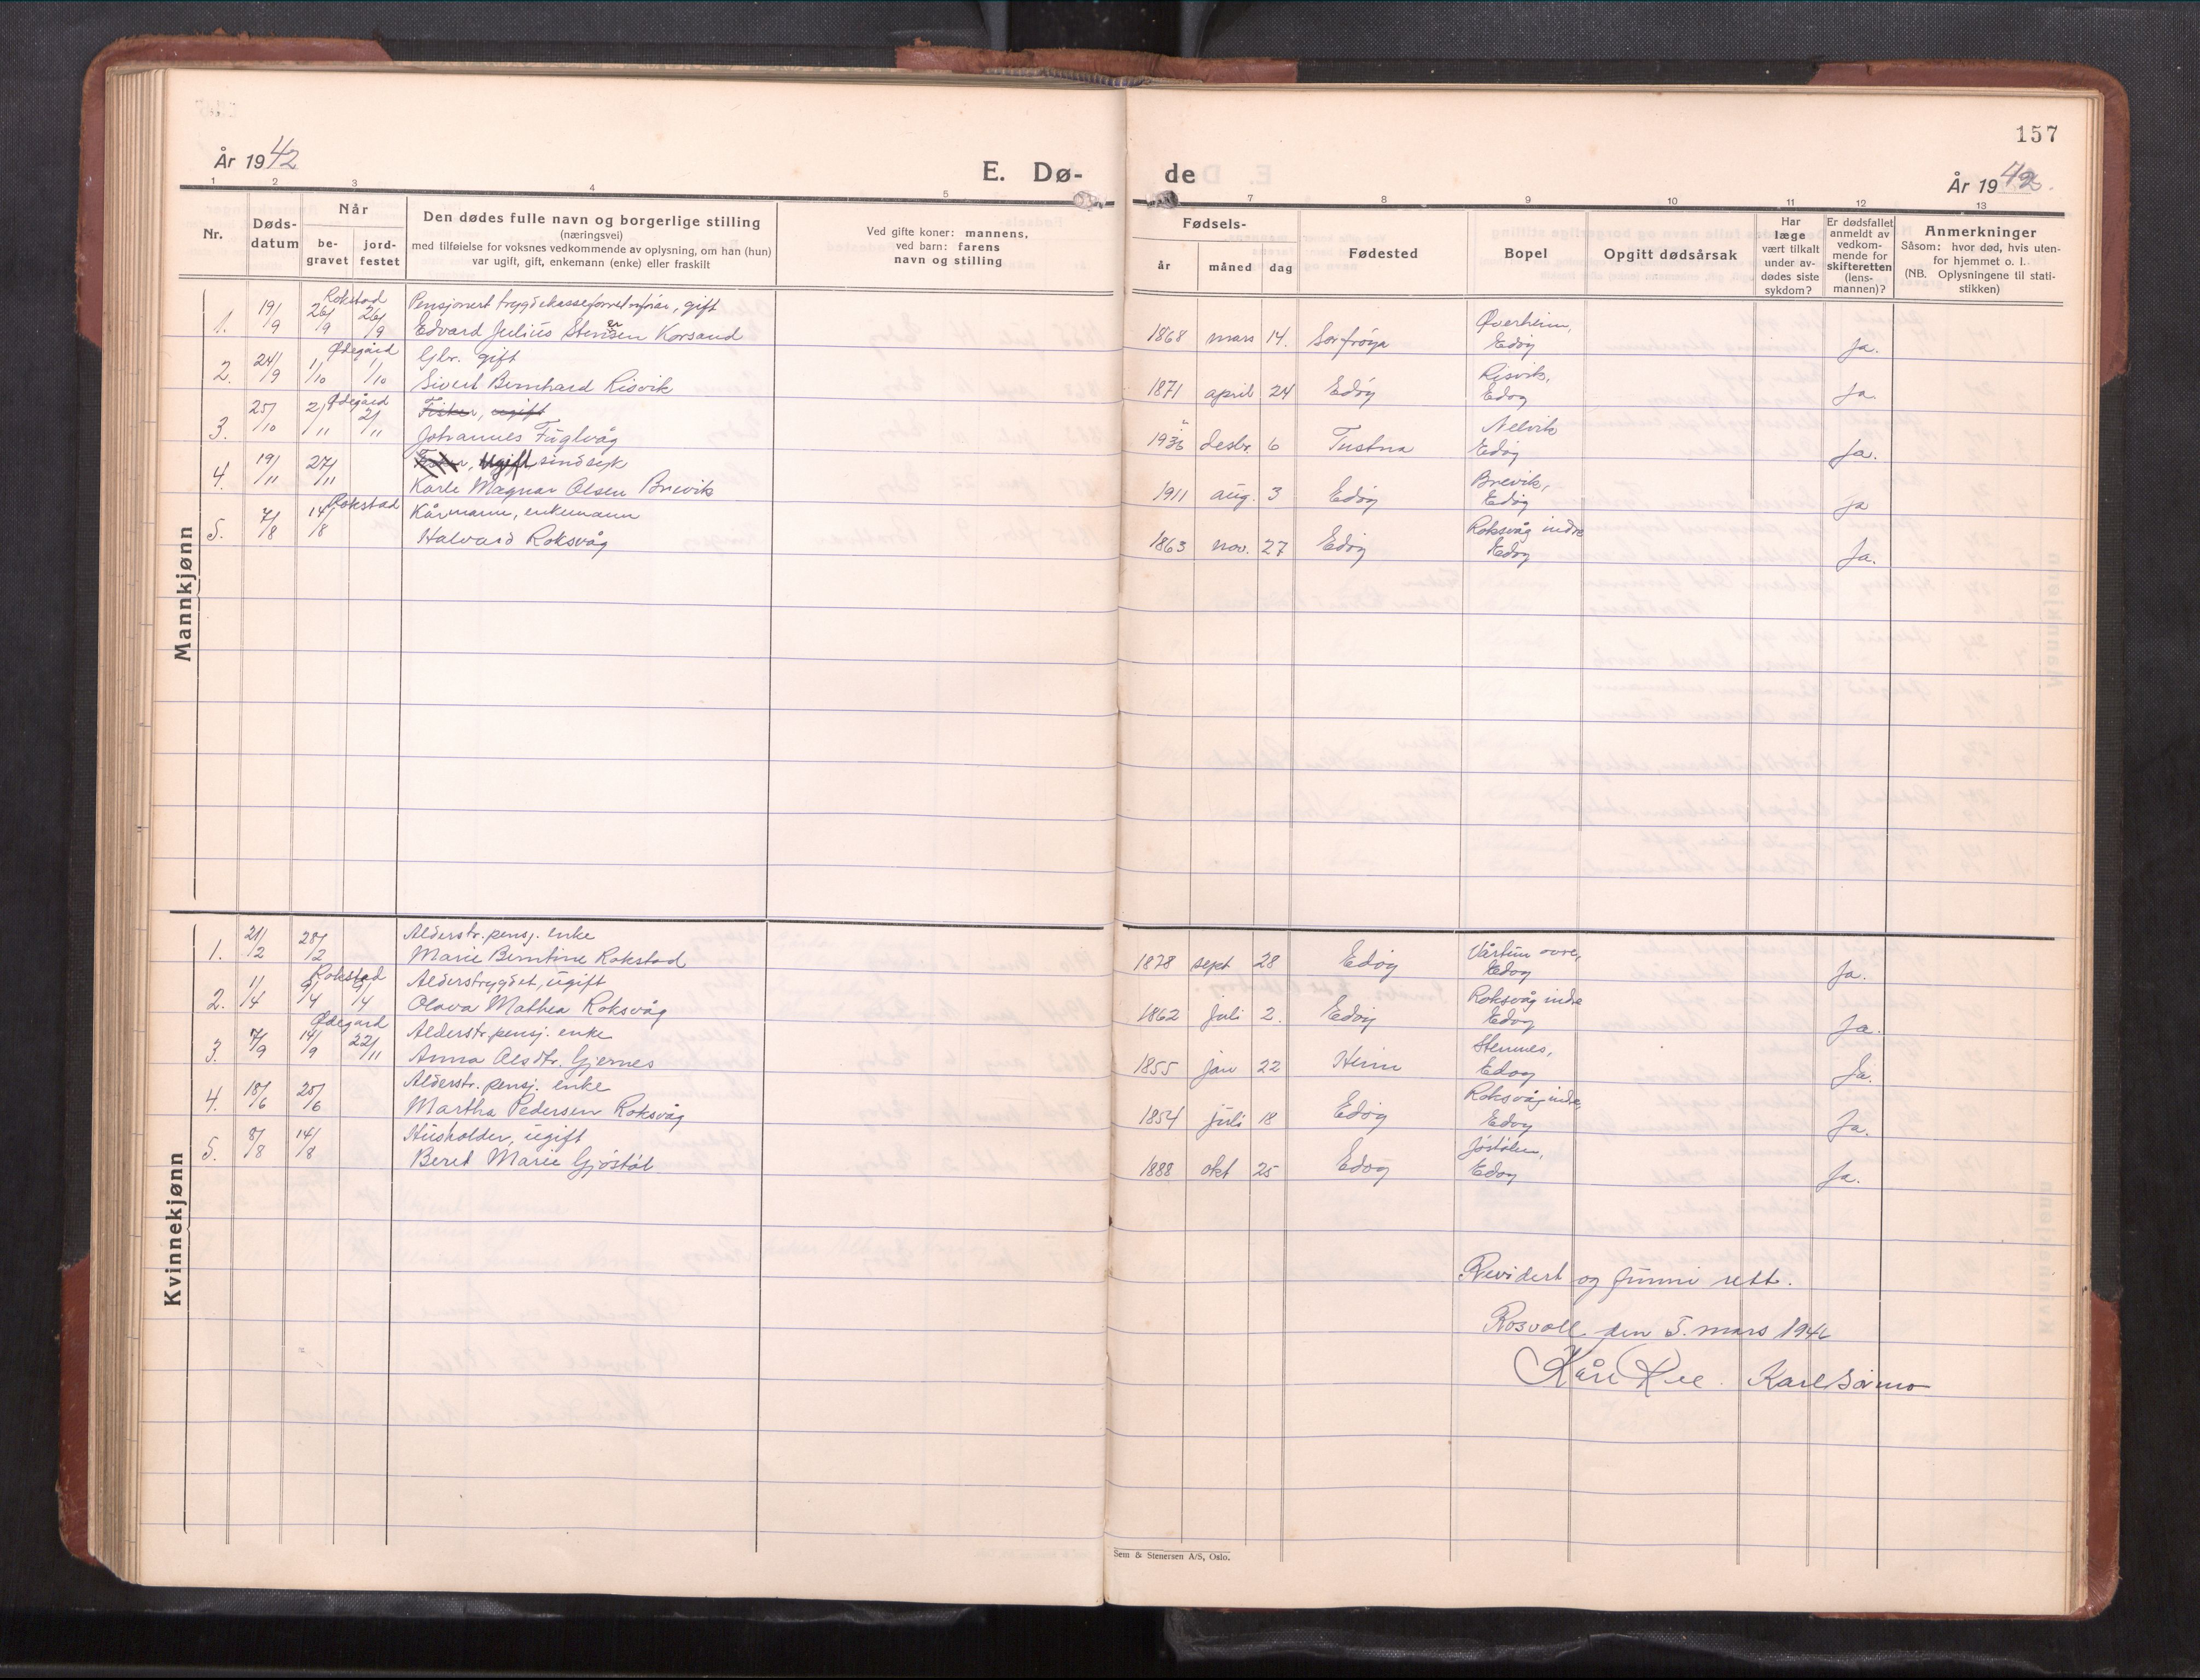 157
År 1942
E. Dø-
de
År 1942.
1 2 3 4 5 7 8 9 10 11 12 13
Nr.
Døds-
datum
Når
be-
gravet
jord-
festet
Den dødes fulle navn og borgerlige stilling
(næringsvei)
med tilføielse for voksnes vedkommende av oplysning, om han (hun)
var ugift, gift, enkemann (enke) eller fraskilt
Ved gifte koner: mannens,
ved barn: farens
navn og stilling
Fødsels-
år måned dag
Fødested
Bopel
Opgitt dødsårsak
Har
læge
vært tilkalt
under av-
dødes siste
sykdom?
Er dødsfallet
anmeldt av
vedkom-
mende for
skifteretten
(lens-
mannen)?
Anmerkninger
Såsom: hvor død, hvis uten-
for hjemmet o. l.
(NB. Oplysningene til stati-
stikken)
Mannkjønn
Rokstad Pensjonert trygdekasseforretn.fører, gift Øverheim,
1. 19/9 26/9 26/9 Edvard Julius Stensen Korsand 1868 mars 14. Sørfrøya Edøy Ja.
Ødegård Gbr. gift Risvik,
2. 24/9 1/10 1/10 Sivert Bernhard Risvik 1871 april 24 Edøy Edøy Ja.
Ødegård Fisker, ugift Nelvik
3. 25/10 2/11 2/11 Johannes Fuglvåg desbr. 6 Tustna Edøy Ja.
Fisker, Ugift, sindsyk Brevik,
4. 19/11 27/11 Karle Magnar Olsen Brevik 1911 aug. 3 Edøy Edøy Ja
Rokstad Kårmann, enkemann Roksvåg indre
5. 7/8 14/8 Halvard Roksvåg 1863 nov. 27 Edøy Edøy Ja.
Kvinnekjønn
Alderstr. pensj. enke
1. 21/2 28/2 Marie Berntine Rokstad 1878 sept 28 Edøy Edøy Ja.
Rokstad Alderstrygdet, ugift Roksvåg indre
2. 1/4 9/4 9/4 Olava Mathea Roksvåg 1862 juli 2. Edøy Edøy Ja.
Ødegård Alderstr. pensj. enke Stennes,
3. 7/9 14/9 22/11 Anna Olsdtr. Gjernes 1855 jan 22 Heim Edøy Ja.
Alderstr. pensj. enke Roksvåg indre,
4. 18/6 25/6 Martha Pedersen Roksvåg 1854 juli 18 Edøy Edøy Ja.
Husholder, ugift Jøstølen,
5. 8/8 14/8 Beret Marie Gjøstøl 1888 okt 25 Edøy Edøy Ja.
Revidert og funni rett.
Rosvoll den 5. mars 1946
Kåre Ree. Karl Sørmo
Sem & Stenersen A/S, Oslo.